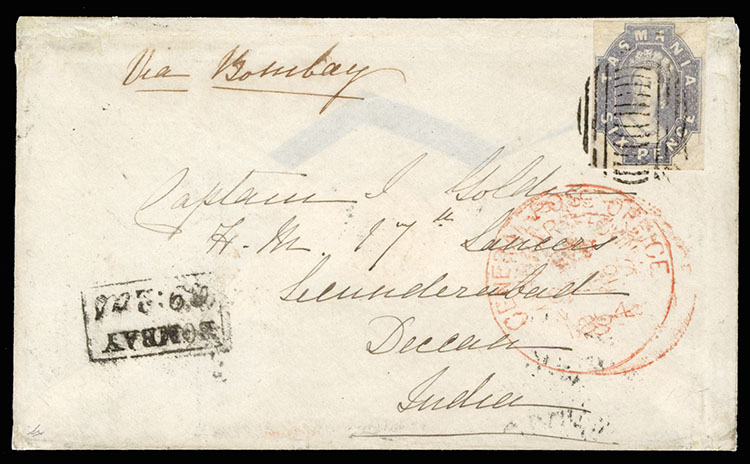 Via Bombay
TASMANIA
SIX PEN
Captain J Goldie
H.M. 17th Lancers
Secunderabad
Deccan
India
GENERAL POST OFFICE
BOMBAY